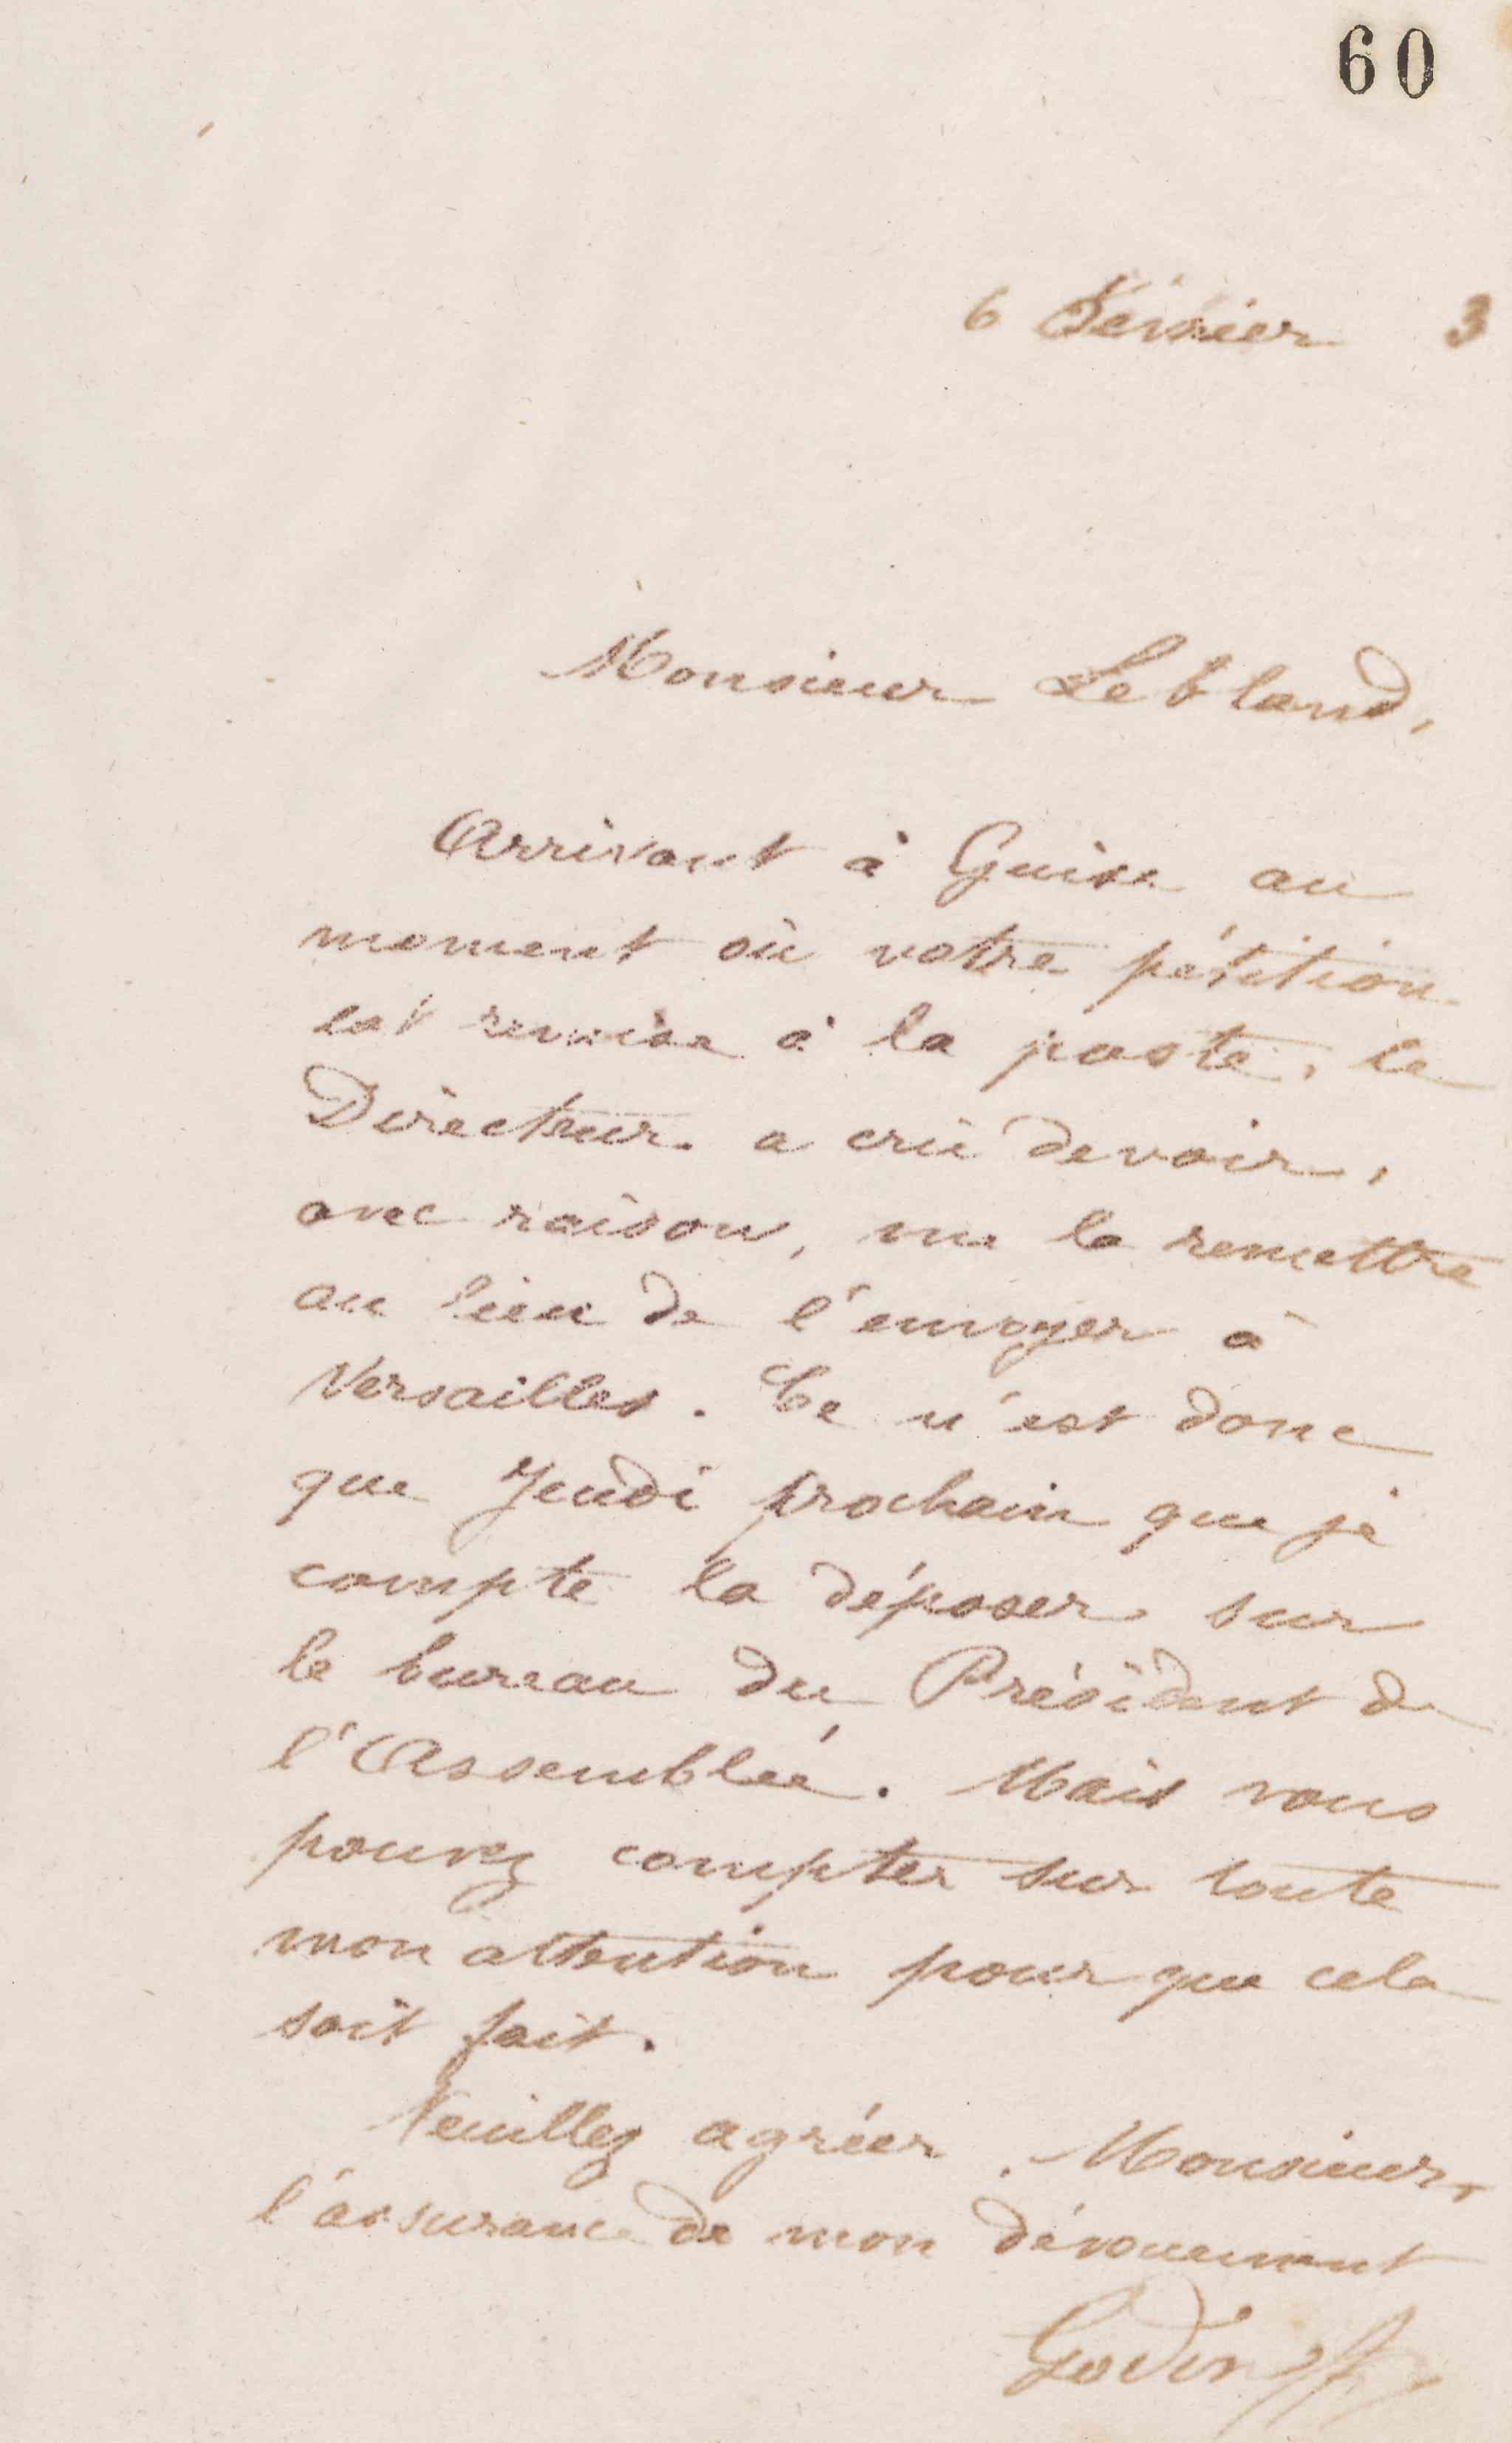 60
6 Février 3
Monsieur Lebland,
Arrivant à Guise au
moment où votre pétition
est remise à la poste, le
Directeur a crû devoir,
avec raison, me la remettre
au lieu de l'envoyer à
Versailles. Ce n'est donc
que Jeudi prochain que je
compte la déposer sur
le bureau du Président de
l'Assemblée. Mais vous
pouvez compter sur toute
mon attention pour que cela
soit fait.
Veuillez agréer, Monsieur,
l'assurance de mon dévouement
Godin